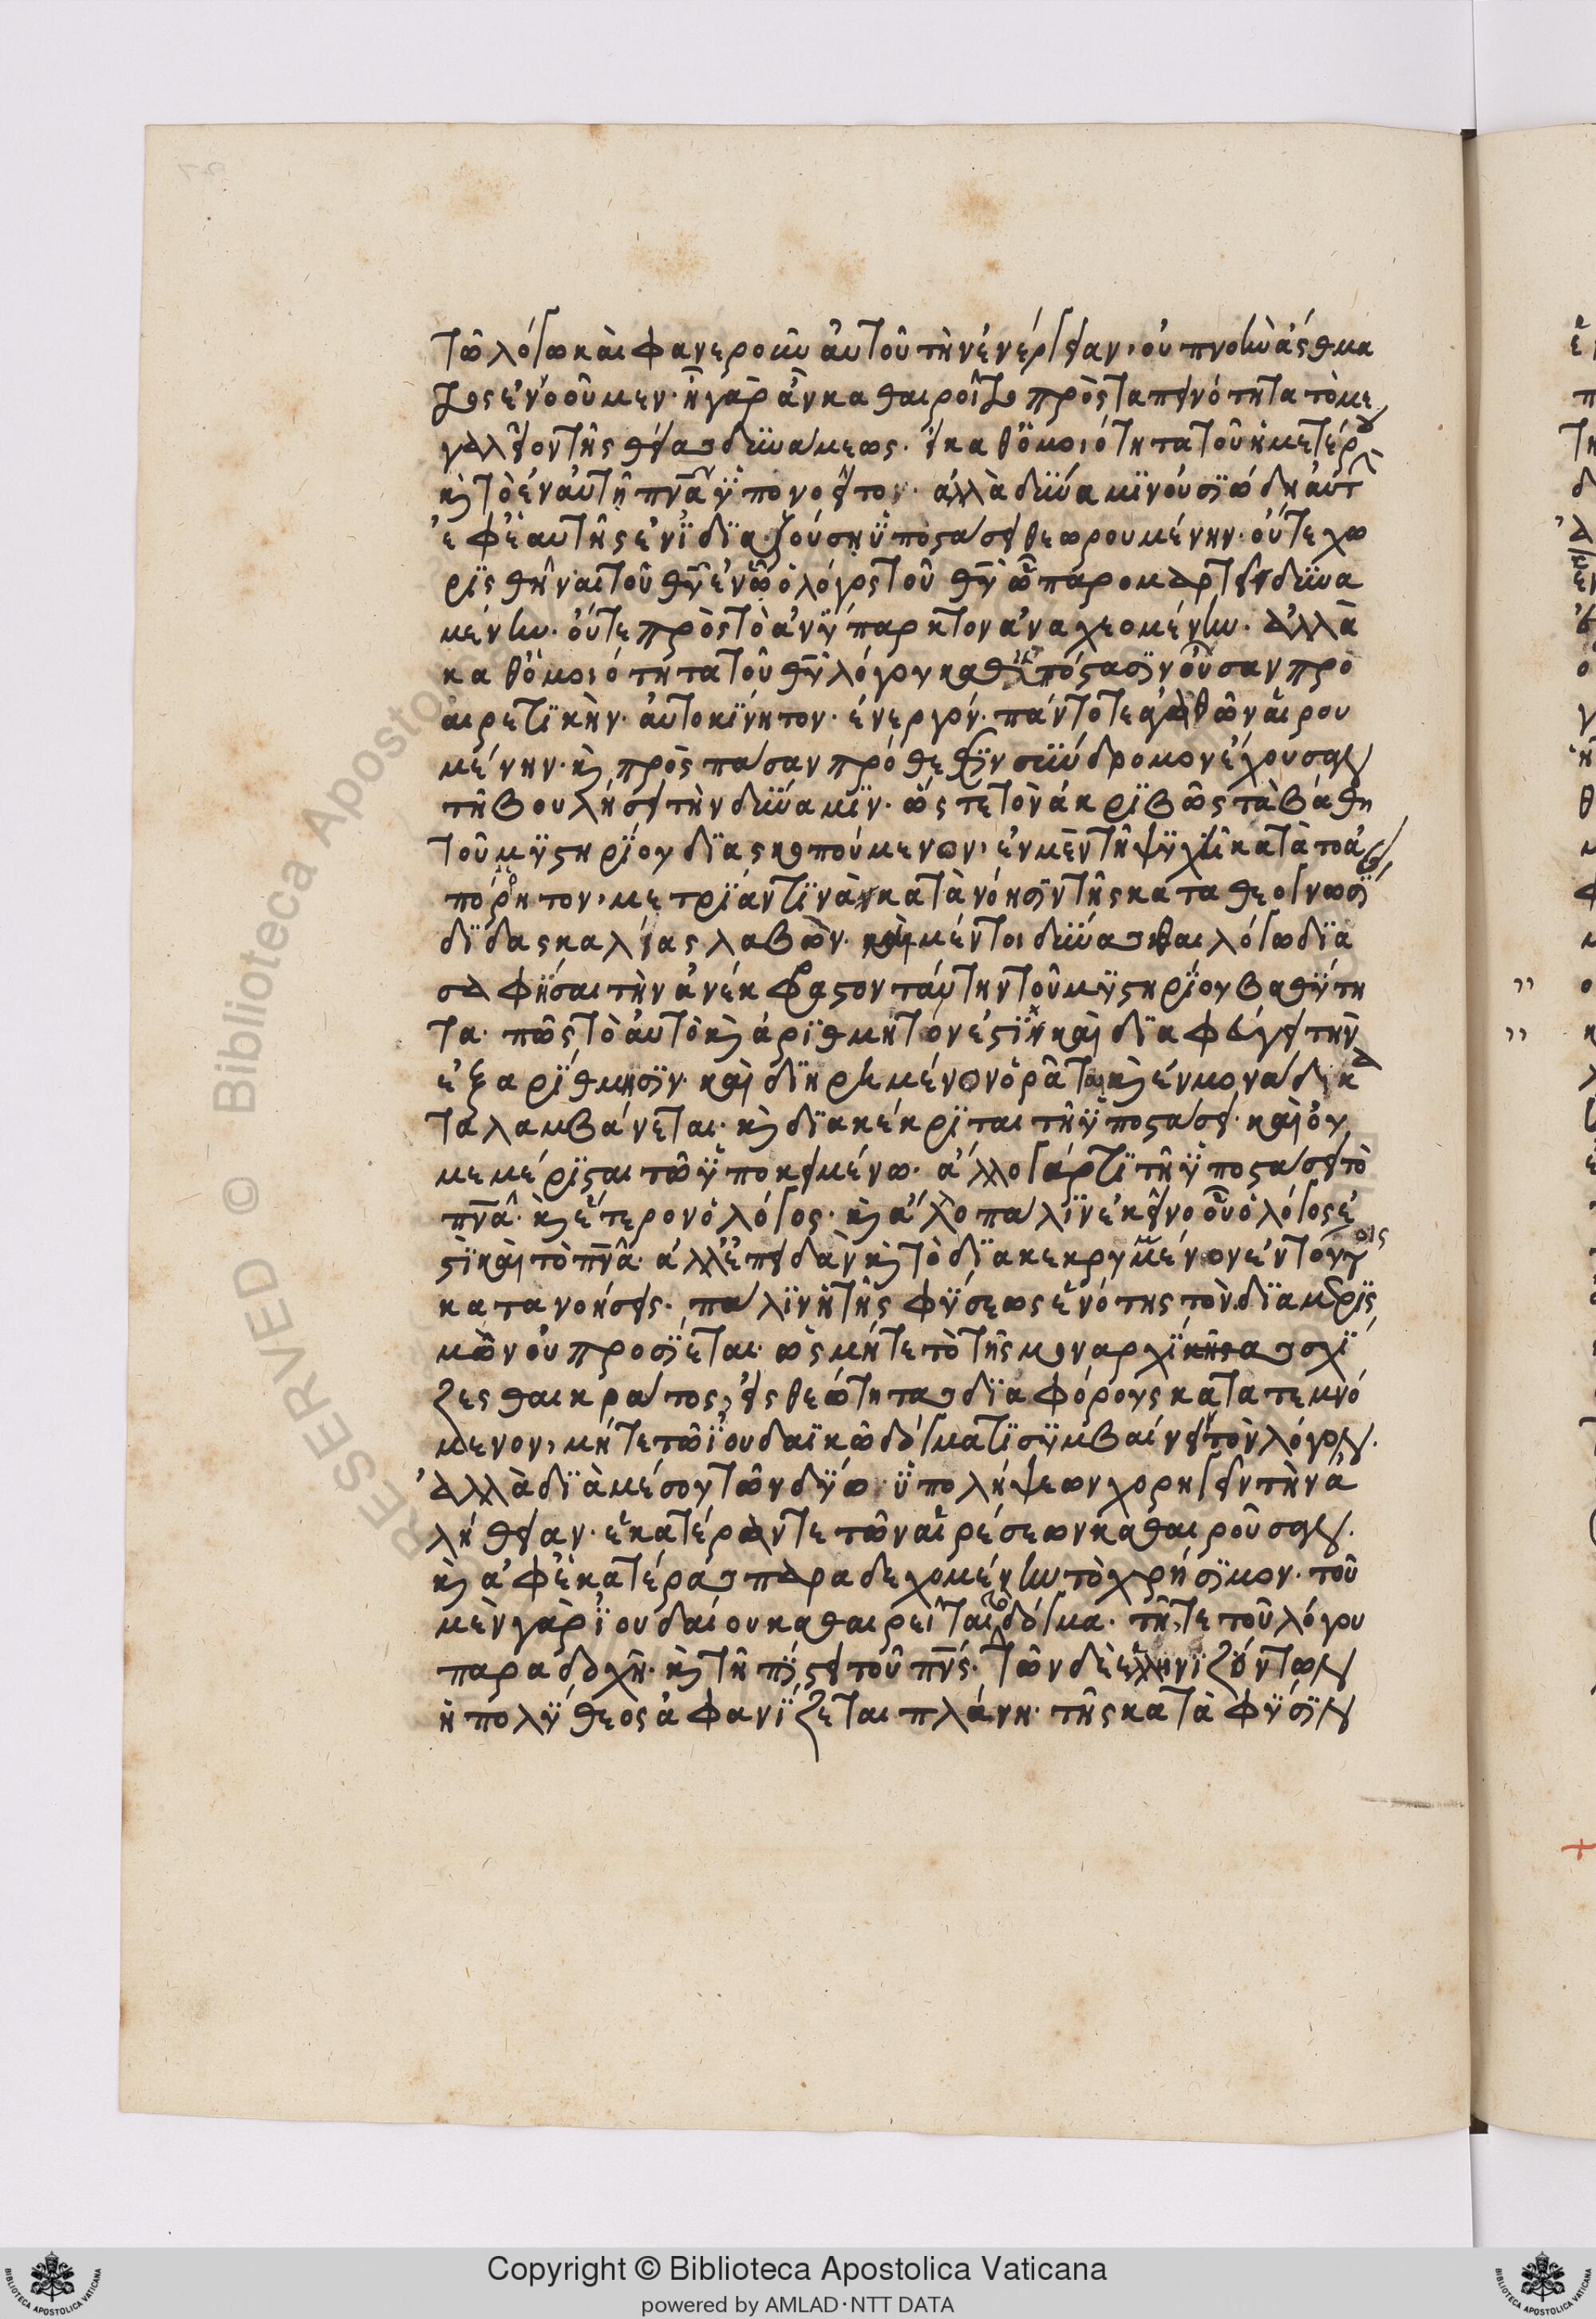 τῶ λόγω καὶ φανεροῦν αὐτοῦ τὴν ἐνέργειαν, οὐ πνοὴν ἄσθμα
τος ἐνοοῦμεν· ἢ γὰρ ἂν καθαιροῖτο πρὸς ταπεινότητα τὸ με
γαλεῖον τῆς θείας δυνάμεως· εἰ καθ' ὁμοιότητα τοῦ ἡμετέρου
κ(αὶ) τὸ ἐν αὐτῆ πνα ὑπονοεῖτο· ἀλλὰ δύναμιν οὐσιώδη αὐτὴν
ἐφ' ἑαυτῆς ἐν ἰδιαζούση ὑποστάσει θεωρουμένην· οὔτε χω
ρισθῆναι τοῦ θυ ἐν ὧ ὁ λόγος τοῦ θυ ὧ παρομαρτεῖ δυνα
μένην· οὔτε πρὸς τὸ ἀνύπαρκτον ἀναχεομένην· ἀλλὰ
καθ' ὁμοιότητα τοῦ θυ λόγου καθ' ὑπόστασιν οὖσαν προ
αιρετικὴν· αὐτοκίνητον· ἐνεργόν· πάντοτε ἀγαθὸν αἱρου
μένην· κ(αὶ) πρὸς πᾶσαν πρόθεσιν σύνδρομον ἔχουσαν
τῆ βουλήσει τὴν δύναμιν· ὥστε τὸν ἀκριβῶς τὰ βάθη
τοῦ μυστηρίου διασκοπούμενον, ἐν μὲν τῆ ψυχῆ κατὰ τὸ ἀ
πόρρητον, μετρίαν τινὰ κατανόησιν τῆς κατὰ θεογνωσί
διδασκαλίας λαβὼν· μὴ μέντοι δύνασθαι λόγω δια
σαφῆσαι τὴν ἀνέκφραστον ταύτην τοῦ μυστηρίου βαθύτη
τα· πῶς τὸ αὐτὸ κ(αὶ) ἀριθμητόν ἐστι καὶ διαφεύγει τὴν
ἐξαρίθμησιν· καὶ διηρημένον ὁρᾶται κ(αὶ) ἐν μονάδι κα
ταλαμβάνεται· κ(αὶ) διακέκριται τῆ ὑποστάσει· καὶ οὐ
μεμέρισται τῶ ὑποκειμένω· ἄλλο γάρ τι τῆ ὑποστάσει τὸ
πνα· κ(αὶ) ἕτερον ὁ λόγος· κ(αὶ) ἄλλο πάλιν ἐκεῖνο οὗ ὁ λόγος ἐ
στὶ καὶ τὸ πνα· ἀλλ' ἐπειδὰν κ(αὶ) τὸ διακεκριμένον ἐν τούτοις
κατανοήσεις· πάλιν ἡ τῆς φύσεως ἑνότης τὸν διαμερισ
μὸν οὐ προσίεται· ὡς μήτε τὸ τῆς μοναρχίας σχί
ζεσθαι κράτος, εἰς θεότητας διαφόρους κατατεμνό
μενον, μήτε τῶ ἰουδαϊκῶ δόγματι συμβαίνειν τὸν λόγον.
ἀλλὰ διὰ μέσου τῶν δύο ὑπολήψεων χορηγεῖν τὴν ἀ
λήθειαν· ἑκατέραν τε τῶν αἱρέσεων καθαιροῦσαν.
κ(αὶ) ἀφ' ἑκατέρας παραδεχομένην τὸ χρήσιμον· τοῦ
μὲν γὰρ ἰουδαίου καθαιρεῖται τὸ δόγμα· τῆ τε τοῦ λόγου
παραδοχῆ· κ(αὶ) τῆ πίστει τοῦ πνς· τῶν δὲ ἑλληνιζόντων
ἡ πολύθεος ἀφανίζεται πλάνη· τῆς κατὰ φύσιν
RESERVED © Biblioteca Apostolica Vaticana
Copyright © Biblioteca Apostolica Vaticana
powered by AMLAD·NTT DATA